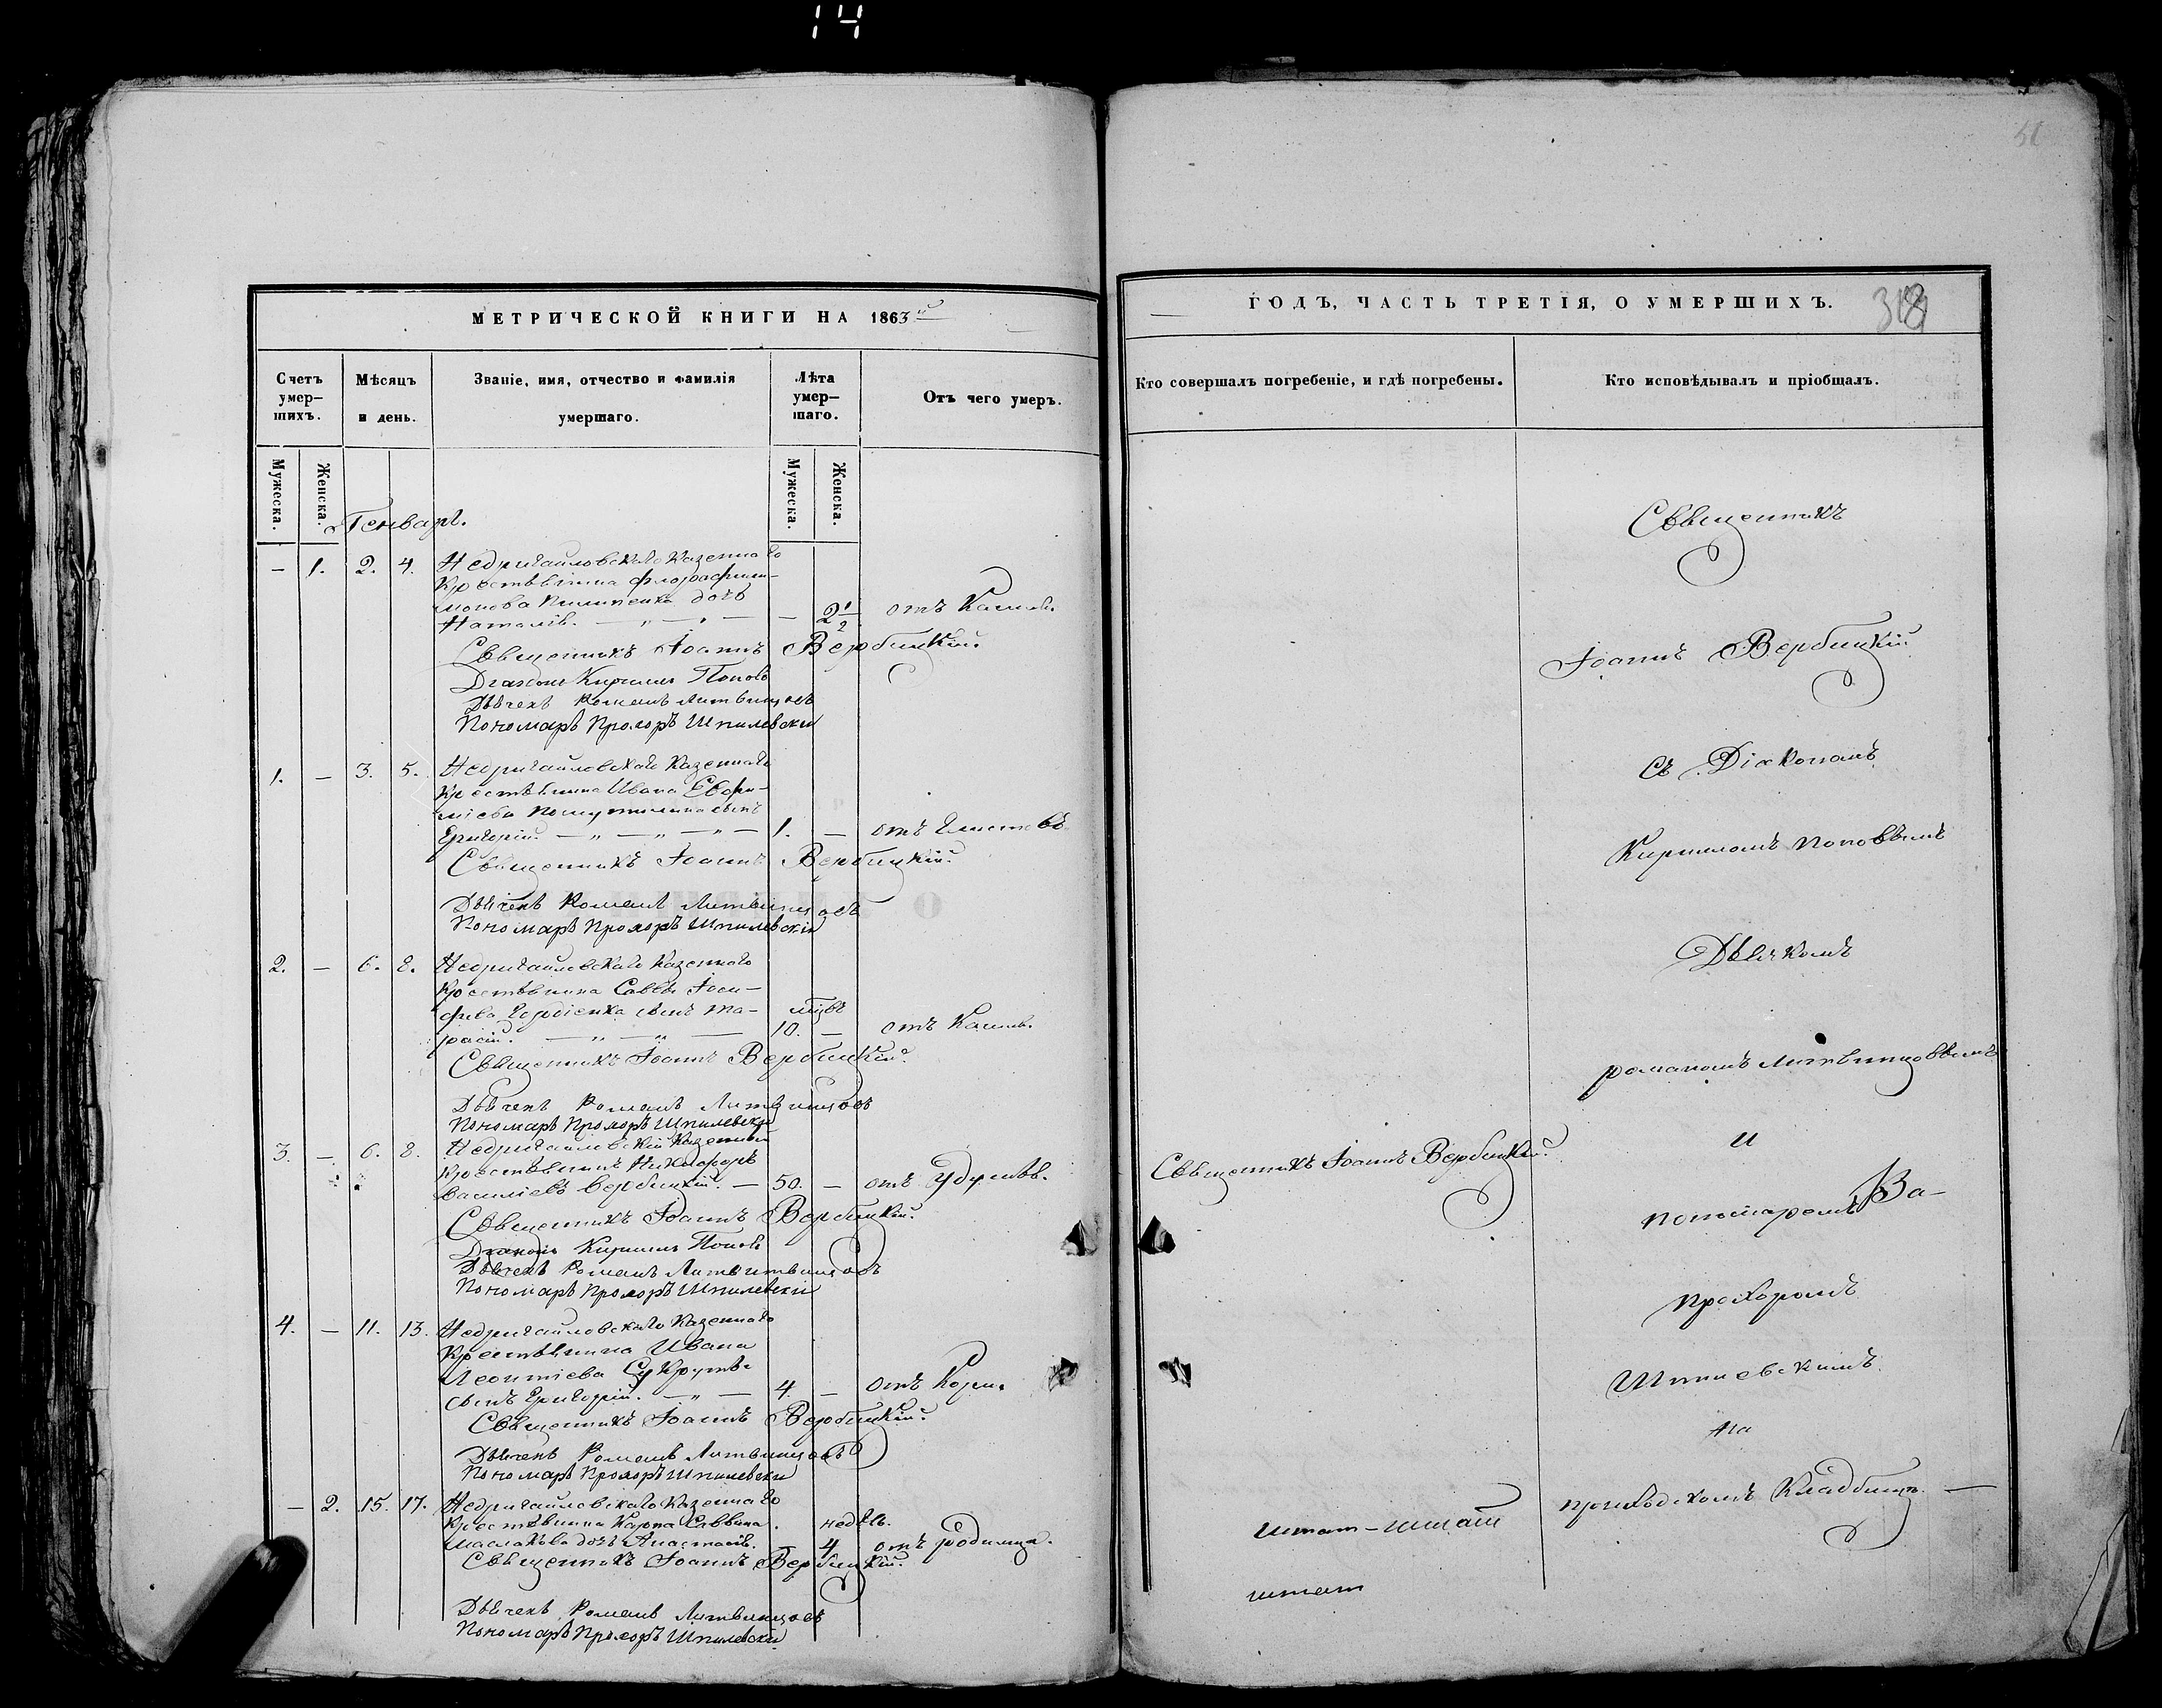 14
МЕТРИЧЕСКОЙ КНИГИ НА 1863й
Счетъ умер-шихъ.
Мѣсяцъ и день.
Званіе, имя, отчество и фамилія умершаго.
Лѣта умер-шаго.
Отъ чего умеръ.
Мужеска.
Женска.
Мужеска.
Женска.
Генваръ.
— 1. 2. 4. Недригайловскаго Казеннаго
Крестьянина
дочь
Наталія. — „ — „ — — 2 1/2 отъ Кашля.
Священникъ Іоаннъ Вербицкій.
Діаконъ Кириллъ Поповъ
Дьячекъ Романъ Литвинцовъ
Пономарь Прохоръ Шпилевскій
1. — 3. 5. Недригайловскаго Казеннаго
Крестьянина Ивана Евфи-
міева сынъ
Григорій. — „ — „ — „ — 1. — отъ Глистовъ
Священникъ Іоаннъ Вербицкій.
Дьячекъ Романъ Литвинцовъ
Пономарь Прохоръ Шпилевскій
2. — 6. 8. Недригайловскаго Казеннаго
Крестьянина Саввы Іоси-
фова Гордіенка сынъ Та- мѣсяцъ
расій. — „ — „ — 10. — отъ Кашля.
Священникъ Іоаннъ Вербицкій.
Дьячекъ Романъ Литвинцовъ
Пономарь Прохоръ Шпилевскій
3. — 6. 8. Недригайловскій Казенный
Крестьянинъ Никифоръ
Василіевъ Вербицкій. — 50. — отъ Удушья.
Священникъ Іоаннъ Вербицкій.
Діаконъ Кириллъ Поповъ
Дьячекъ Романъ Литвинцовъ
Пономарь Прохоръ Шпилевскій
4. — 11. 13. Недригайловскаго Казеннаго
Крестьянина Ивана
Леонтіева
сынъ Григорій. — „ — 4. — отъ Кори.
Священникъ Іоаннъ Вербицкій.
Дьячекъ Романъ Литвинцовъ
Пономарь Прохоръ Шпилевскій
— 2. 15. 17. Недригайловскаго Казеннаго
Крестьянина Карпа Саввина недѣль.
Маслакова дочь Анастасія. — 4 отъ родимца.
Священникъ Іоаннъ Вербицкій.
Дьячекъ Романъ Литвинцовъ
Пономарь Прохоръ Шпилевскій
ГОДЪ, ЧАСТЬ ТРЕТІЯ, О УМЕРШИХЪ.
Кто совершалъ погребеніе, и гдѣ погребены.
Кто исповѣдывалъ и пріобщалъ.
Священникъ
Іоаннъ Вербицкій
съ Діакономъ
Кирилломъ Поповымъ
Дьячкомъ
Романомъ Литвинцовымъ
и
Пономаремъ
Прохоромъ
Шпилевскимъ
на
приходскомъ Кладбищѣ. —
Священникъ Іоаннъ Вербицкій.